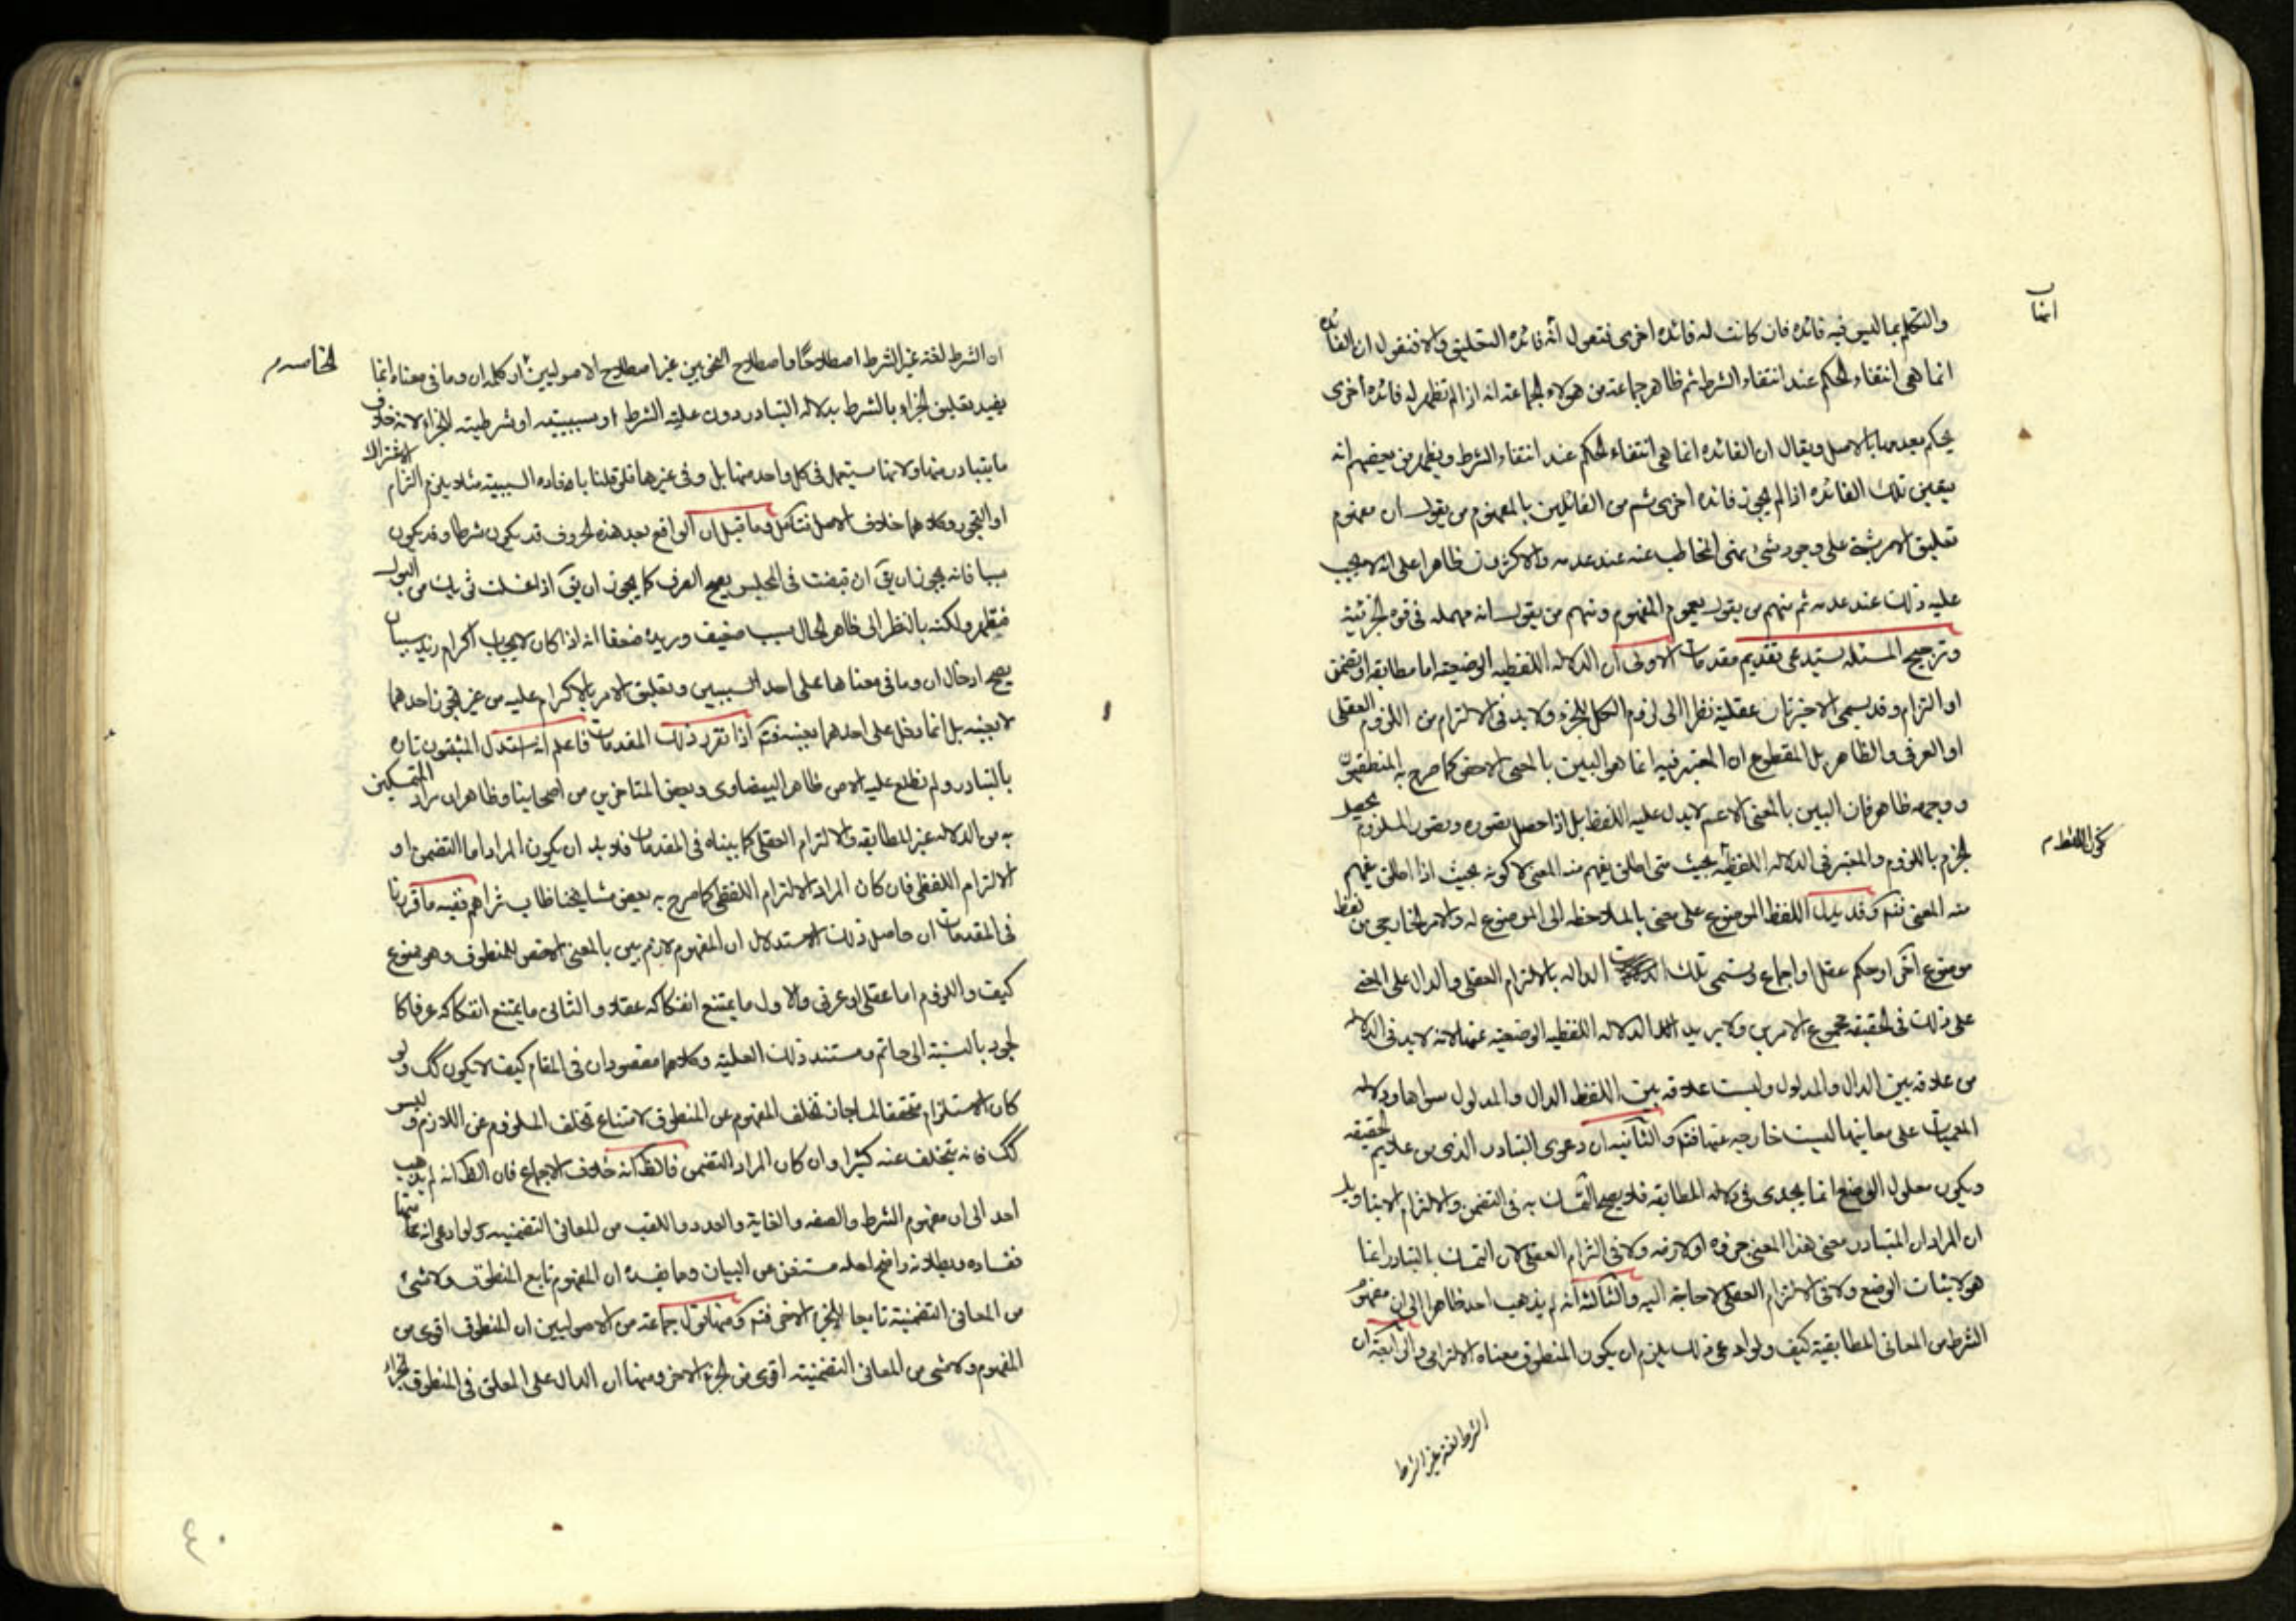 والتكلم بما ليس فيه فائده فان كانت له فائده اخرى فنقول انه فائده التعليق والا فنقول ان الفائده
انما هى انتفاء الحكم عند انتفاء الشرط ثم ظاهر جماعة من هولاء الجماعة انه اذا لم تظهر له فائده اخرى
يحكم بعدمها بالاصل ويقال ان الفائده انما هى انتفاء الحكم عند انتفاء الشرط ويظهر من بعضهم انه
يتعين تلك الفائده اذا لم يجز فائده اخرى ثم من القائلين بالمفهوم من يقول ان مفهوم
تعليق الامر بشئ على وجود شئ نهى المخاطب عنه عند عدمه والاكثرون ظاهرا على انه لا يجب
عليه ذلك عند عدمه ثم منهم من يقول بعموم المفهوم ومنهم من يقول انه مهمله فى قوه الجزئية
وترجيح المسئله يستدعى تقديم مقدمات الاولى ان الدلاله اللفظيه الوضعيه اما مطابقه او تضمن
او التزام وقد يسمى الاخيرتان عقلية نظرا الى لزوم الكل للجزء ولا بد فى الالتزام من اللزوم العقلى
او العرفى والظاهر بل المقطوع ان المعتبر فيه انما هو البين بالمعنى الاخص كما صرح به المنطقيون
ووجهه ظاهر فان البين بالمعنى الاعم لا يدل عليه اللفظ بل اذا حصل تصوره وتصور الملزوم يحصل
الجزم باللزوم والمعتبر فى الدلاله اللفظيه بحيث متى اطلق يفهم منه المعنى لا كونه بحيث اذا اطلق يفهم
منه المعنى فتم وقد يدل اللفظ الموضوع على معنى بالملاحظه الى الموضوع له والامر الخارجى من لفظ
موضوع آخر او حكم عقل او اجماع ويسمى تلك الدلاله بالالتزام العقلى والدال على المعنى
على ذلك فى الحقيقه مجموع الامرين ولا يريد الدلاله اللفظيه الوضعيه عنها لانه لا بد فى الدلاله
من علاقه بين الدال والمدلول وليست علاقه بين اللفظ الدال والمدلول سواها ودلاله
المعميات على معانيها ليست خارجه عنها فتم والثانيه ان دعوى التبادر الذى من علايم الحقيقه
ويكون معلول الوضع انما يجدى فى دلاله المطابقه فلا يصح التمسك به فى التضمن والالتزام الا بتاويل
ان المراد ان المتبادر معنى هذا المعنى جزؤه او لازمه ولا فى التزام العقلى لان التمسك بالتبادر انما
هو لاثبات الوضع ولا فى الالتزام العقلى لا حاجة اليه والثالثة انه لم يذهب احد ظاهرا الى ان مفهوم
الشرط من المعانى المطابقية كيف ولو ادعى ذلك يلزم ان يكون المنطوق معناه الالتزامى والرابعة ان
الشرط لغة غير الشرط
كون اللفظ م
الخامسه م
ان الشرط لغة غير الشرط اصطلاحا واصطلاح النحويين غير اصطلاح الاصوليين ثم ان كلمه ان وما فى معناه انما
يفيد تعليق الجزاء بالشرط بدلاله التبادر دون علية الشرط او سببيته او شرطيته للجزاء لانه خلاف
ما يتبادر منها ولانها يستعمل فى كل واحد منها بل وفى غيرها فلو قلنا بافاده السببية مثلا يلزم التزام الاشتراك
او التجوز وكلاهما خلاف الاصل فتامل وما قيل ان الواقع بعد هذه الحروف قد يكون شرطا وقد يكون
سببا فانه يجوز ان يق ان قبضت فى المجلس يصح الصرف كما يجوز ان يق اذا غسلت ثوبك من البول
فيطهر ولكنه بالنظر الى ظاهر الحال سبب ضعيف ويريده ضعفا انه اذا كان لايجاب اكرام زيد سببان
يصح ادخال ان وما فى معناها على احد السببين وتعليق الامر بالاكرام عليه من غير تجوز احدهما
لا بعينه بل انما دخل على احدهما بعينه فتم اذا تقرر ذلك المقدمات فاعلم انه استدل المثبتون تاره
بالتبادر ولم نطلع عليه الا من ظاهر البيضاوى وبعض المتاخرين من اصحابنا وظاهر ان مراد المتمسكين
به من الدلاله غير المطابقه والالتزام العقلى كما بيناه فى المقدمات فلا بد ان يكون المراد اما التضمن او
الالتزام اللفظى فان كان المراد الالتزام اللفظى كما صرح به بعض مشايخنا طاب ثراهم ففيه ما قررنا
فى المقدمات ان حاصل ذلك الاستدلال ان المفهوم لازم بين بالمعنى الاخص للمنطوق وهو ممنوع
كيف واللزوم اما عقلى او عرفى والاول ما يمتنع انفكاكه عقلا والثانى ما يمتنع انفكاكه عرفا كا
لجود بالنسبة الى حاتم ومستند ذلك العلية وكلاهما مفقودان فى المقام كيف لا يكون كك ولو
كان الاستلزام متحققا لما جاز تخلف المفهوم عن المنطوق لامتناع تخلف الملزوم عن اللازم وليس
كك فانه يتخلف عنه كثيرا وان كان المراد التضمن فالظ انه خلاف الاجماع فان الظ انه لم يذهب
احد الى ان مفهوم الشرط والصفه والغاية والعدد واللقب من المعانى التضمنيه ولو ادعى انه منها
ففساده وبطلانه واضح لعله مستغن عن البيان وما يفسده ان المفهوم تابع المنطوق ولا شئ
من المعانى التضمنية تابعا للجزء الاخر فتم ومنها قول جماعة من الاصوليين ان المنطوق اقوى من
المفهوم ولا شئ من المعانى التضمنيه اقوى من الجزء الاخر ومنها ان الدال على المعلق فى المنطوق الجزاء
٤٠